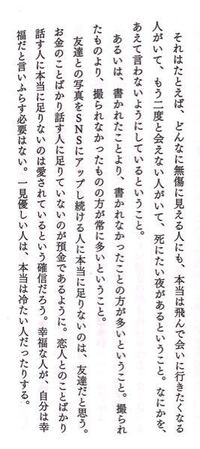 それはたとえば、どんなに無傷に見える人にも、本当は飛んで会いに行きたくなる
人がいて、もう二度と会えない人がいて、死にたい夜があるということ。なにかを、
あえて言わないようにしているということ。
あるいは、書かれたことより、書かれなかったことの方が多いということ。撮られ
たものより、撮られなかったものの方が常に多いということ。
友達との写真をSNSにアップし続ける人に本当に足りないのは、友達だと思う。
お金のことばかり話す人に足りていないのが預金であるように。恋人とのことばかり
話す人に本当に足りないのは愛されているという確信だろう。幸福な人が、自分は幸
福だと言いふらす必要はない。一見優しい人は、本当は冷たい人だったりする。